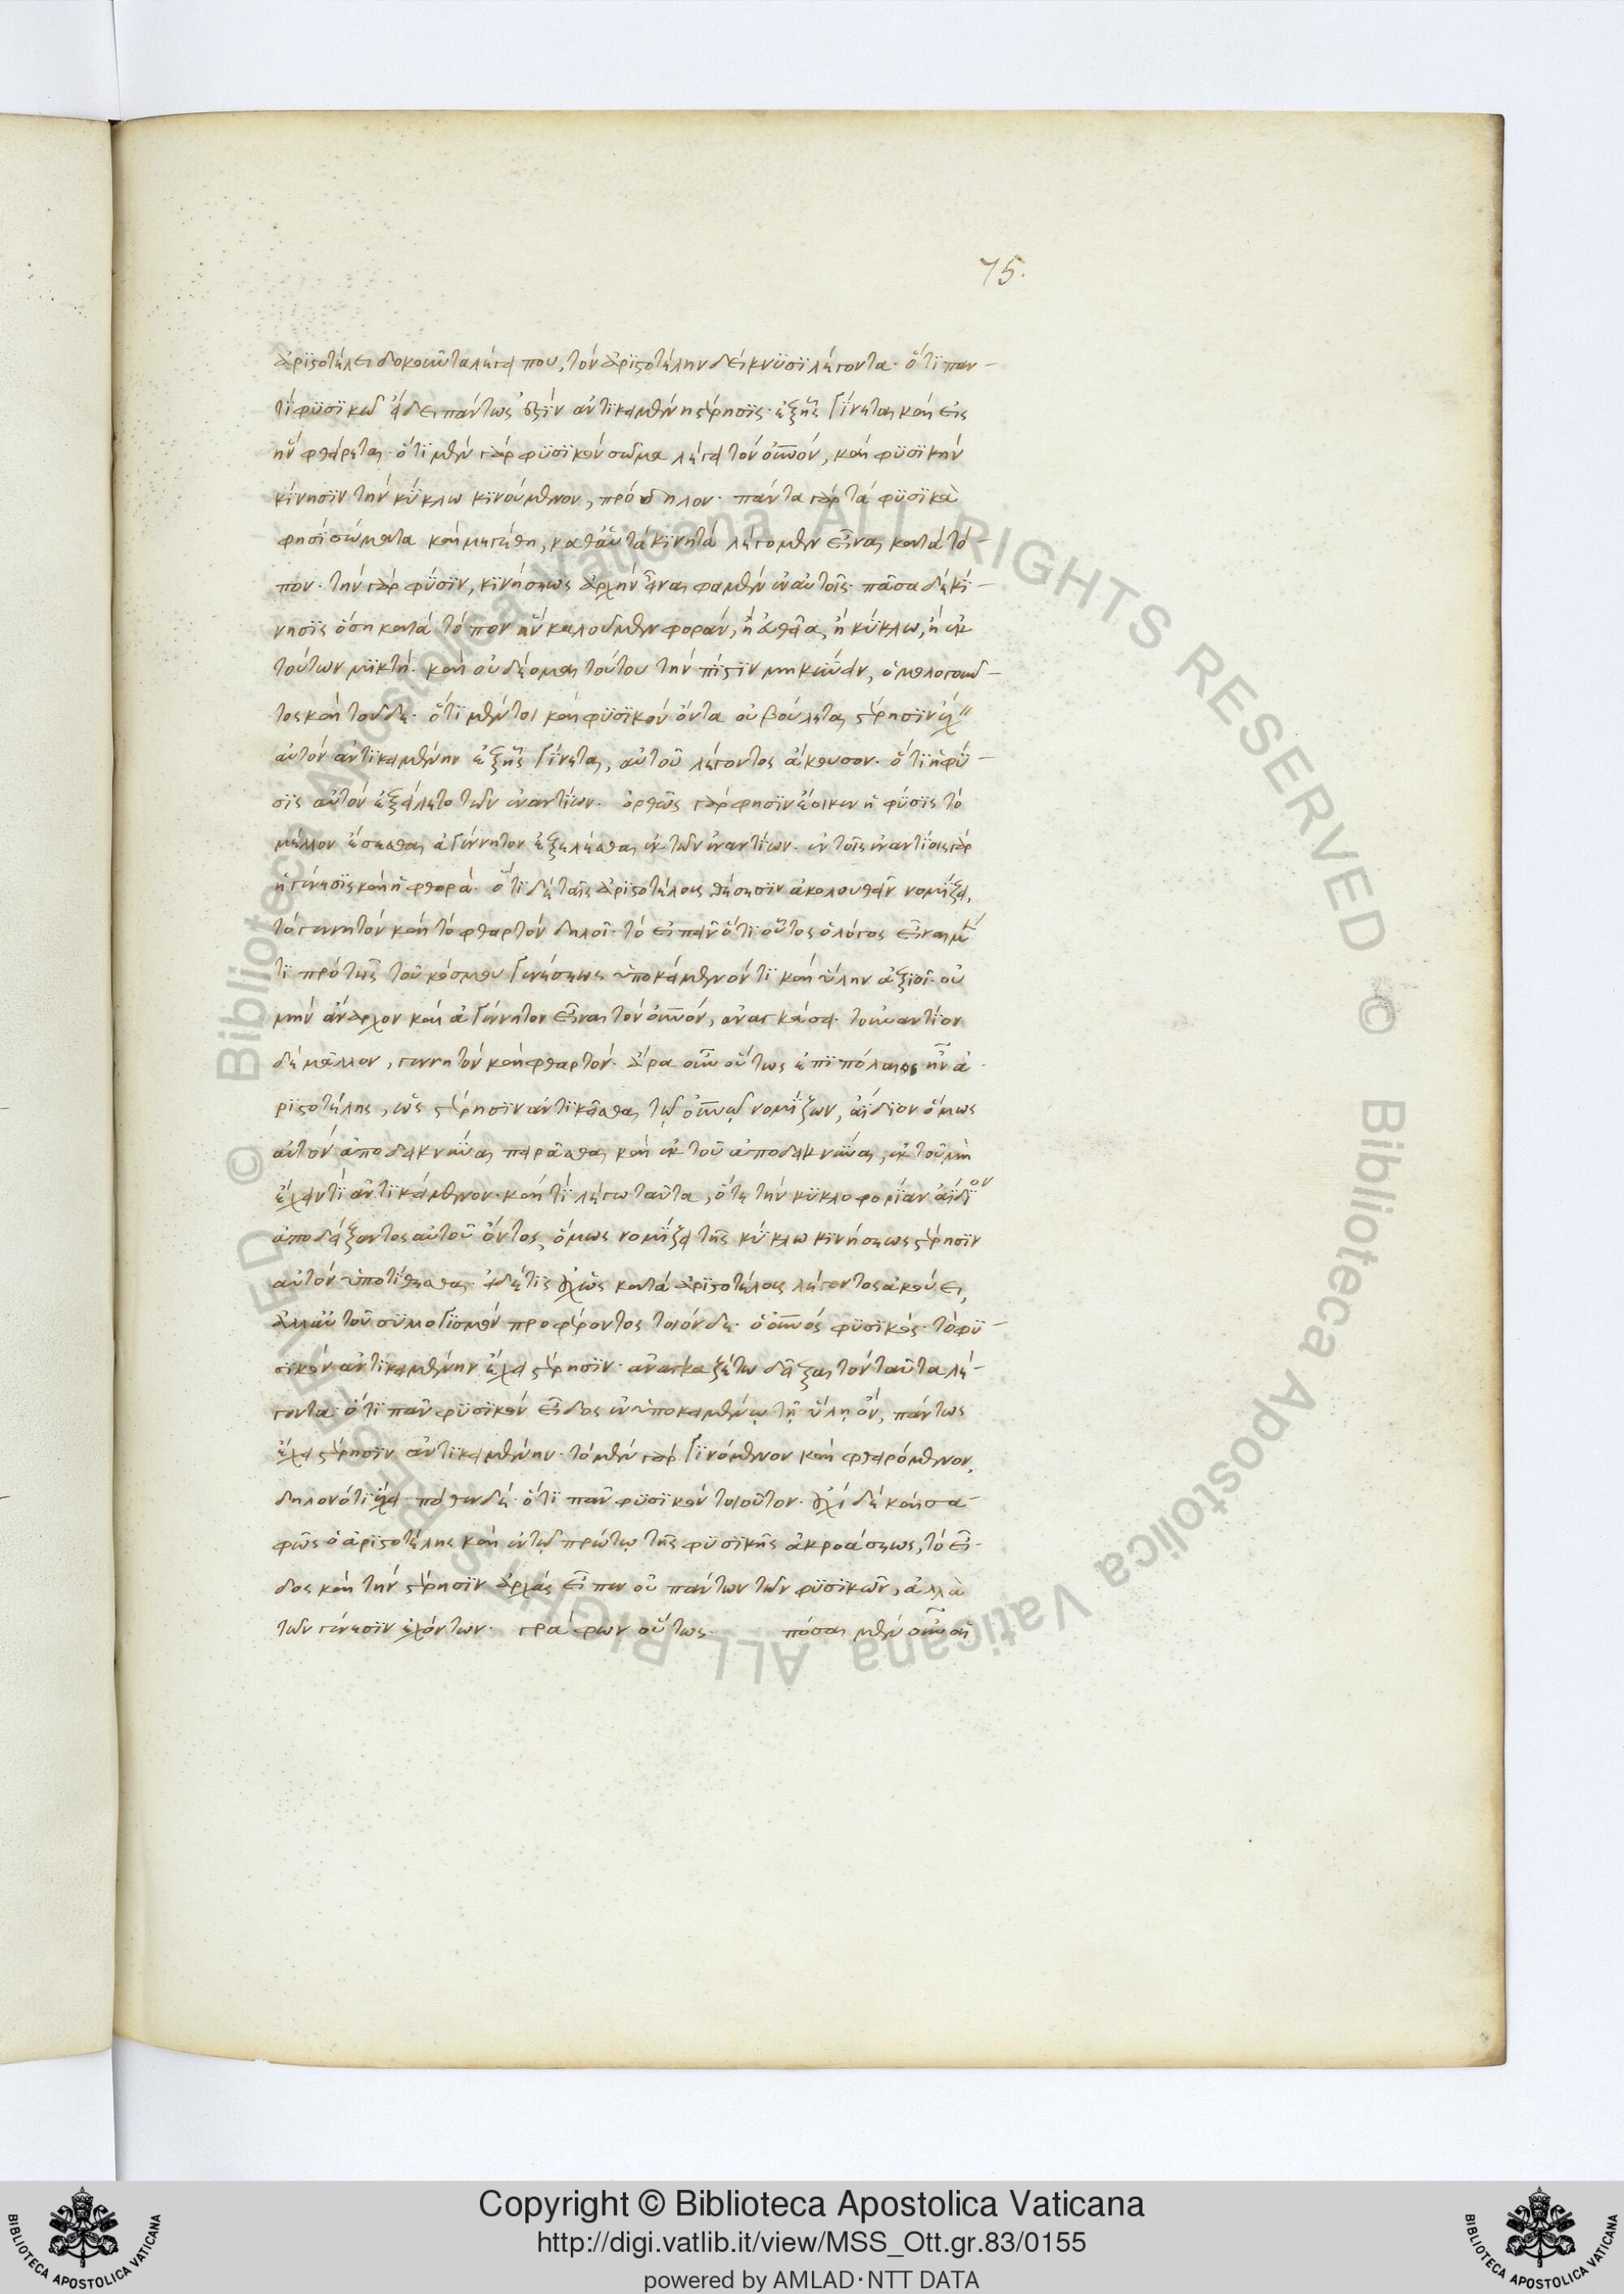 75.
ἀριστοτέλει δοκοῦντα λέγει που, τὸν ἀριστοτέλην δείκνυσι λέγοντα· ὅτι παν-
τὶ φυσικῶ εἴδει πάντως ἐστὶν ἀντικειμένη στέρησις· ἐξ ἧς γίνεται καὶ εἰς
ἣν φθείρεται· ὅτι μὲν γὰρ φυσικὸν σῶμα λέγει τὸν οὐνον, καὶ φυσικὴν
κίνησιν τὴν κύκλω κινούμενον, πρόδηλον· πάντα γὰρ τὰ φυσικὰ
φησὶ σώματα καὶ μεγέθη, καθ' αὑτὰ κινητὰ λέγομεν εἶναι κατὰ τό-
πον· τὴν γὰρ φύσιν, κινήσεως ἀρχὴν εἶναι φαμὲν ἐν αὐτοῖς· πᾶσα δὲ κί-
νησις ὅση κατὰ τόπον ἣν καλοῦμεν φορὰν, ἢ εὐθεῖα, ἢ κύκλω, ἢ ἐκ
τούτων μικτή· καὶ οὐ δέομαι τούτου τὴν πίστιν μηκύνειν, ὁμολογοῦν-
τος καὶ τοῦδε· ὅτι μέντοι καὶ φυσικὸν ὄντα οὐ βούλεται στέρησιν ἔχ"
αὐτὸν ἀντικειμένην ἐξ ἧς γίνεται, αὐτοῦ λέγοντος ἄκουσον· ὅτι ἡ φύ-
σις αὐτὸν ἐξείλετο τῶν ἐναντίων· ὀρθῶς γὰρ φησὶν ἔοικεν ἡ φύσις τὸ
μέλλον ἔσεσθαι ἀγέννητον ἐξελέσθαι ἐκ τῶν ἐναντίων· ἐν τοῖς ἐναντίοις γὰρ
ἡ γένεσις καὶ ἡ φθορά· ὅτι δὲ ταῖς ἀριστοτέλους θέσεσιν ἀκολουθεῖν νομίζει,
τὸ γεννητὸν καὶ τὸ φθαρτὸν δηλοῖ· τὸ εἰπεῖν ὅτι οὗτος ὁ λόγος εἶναι μέν
τι πρὸ τῆς τοῦ κόσμου γενέσεως ὑποκείμενόν τι καὶ ὕλην ἀξιοῖ· οὐ
μὴν ἄναρχον καὶ ἀγέννητον εἶναι τὸν οὐνον, ἀναγκάσει· τοὐναντίον
δὲ μᾶλλον, γεννητὸν καὶ φθαρτόν· ἆρα οὖν οὕτως ἐπιπόλαιος ἦν ἀ-
ριστοτέλης, ὡς στέρησιν ἀντικεῖσθαι τῷ οὐνῷ νομίζων, ἀΐδιον ὅμως
αὐτὸν ἀποδεικνύναι πειρᾶσθαι καὶ ἐκ τοῦ ἀποδεικνύναι, ἐκ τοῦ μὴ
ἔχειν τι ἀντικείμενον· καὶ τί λέγω ταῦτα, ὅτε τὴν κυκλοφορίαν ἀΐδιον
ἀποδείξαντος αὐτοῦ ὄντος, ὅμως νομίζει τῆς κύκλω κινήσεως στέρησιν
αὐτὸν ὑποτίθεσθαι· εἰ δέ τις οὐχ ὡς κατὰ ἀριστοτέλους λέγοντος ἀκούει,
ἀλλ' αὐτοῦ συλλογισμὸν προφέροντος τοιόνδε· ὁ οὐνος φυσικός· τὸ φυ-
σικὸν ἀντικειμένην ἔχει στέρησιν· ἀναγκαζέτω δεῖξαι τὸν ταῦτα λέ-
γοντα ὅτι πᾶν φυσικὸν εἶδος ἐν ὑποκειμένῳ τῇ ὕλῃ ὂν, πάντως
ἔχει στέρησιν ἀντικειμένην· τὸ μὲν γὰρ γινόμενον καὶ φθειρόμενον,
δηλονότι ἔχει· πόθεν δὲ ὅτι πᾶν φυσικὸν τοιοῦτον· οὐχὶ δὲ καὶ σα-
φῶς ὁ ἀριστοτέλης καὶ ἐν τῷ πρώτῳ τῆς φυσικῆς ἀκροάσεως, τὸ εἶ-
δος καὶ τὴν στέρησιν ἀρχὰς εἶπεν οὐ πάντων τῶν φυσικῶν, ἀλλὰ
τῶν γένεσιν ἐχόντων· γράφων οὕτως· πόσαι μὲν οὖν αἱ
Copyright © Biblioteca Apostolica Vaticana
http://digi.vatlib.it/view/MSS_Ott.gr.83/0155
powered by AMLAD·NTT DATA